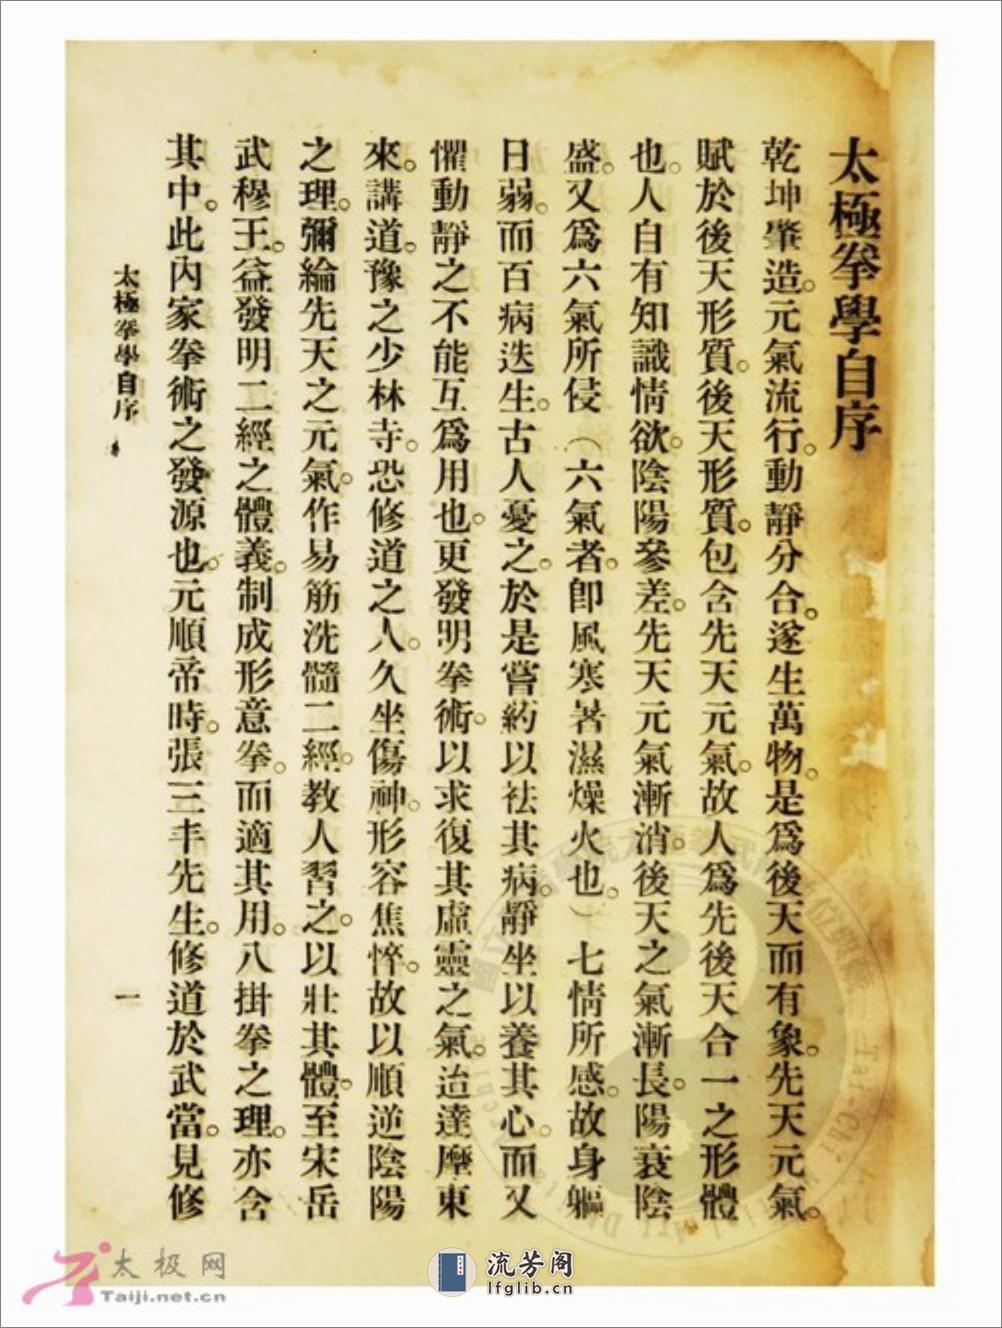 太極拳學自序
乾坤肇造。元氣流行。動靜分合。遂生萬物。是爲後天而有象。先天元氣。
賦於後天形質。後天形質。包含先天元氣。故人爲先後天合一之形體
也。人自有知識情欲。陰陽參差。先天元氣漸消。後天之氣漸長。陽衰陰
盛。又爲六氣所侵（六氣者。卽風寒暑濕燥火也。）七情所感。故身軀
日弱。而百病迭生。古人憂之。於是嘗葯以祛其病。靜坐以養其心。而又
懼動靜之不能互爲用也。更發明拳術。以求復其虛靈之氣。迨達摩東
來。講道。豫之少林寺。恐修道之人。久坐傷神。形容焦悴。故以順逆陰陽
之理。彌綸先天之元氣。作易筋洗髓二經。教人習之。以壯其體。至宋岳
武穆王。益發明二經之體義。制成形意拳。而適其用。八掛拳之理。亦含
其中。此內家拳術之發源也。元順帝時。張三丰先生。修道於武當。見修
太極拳學自序
一
太极网
Taiji.net.cn
流芳阁
lfglib.cn